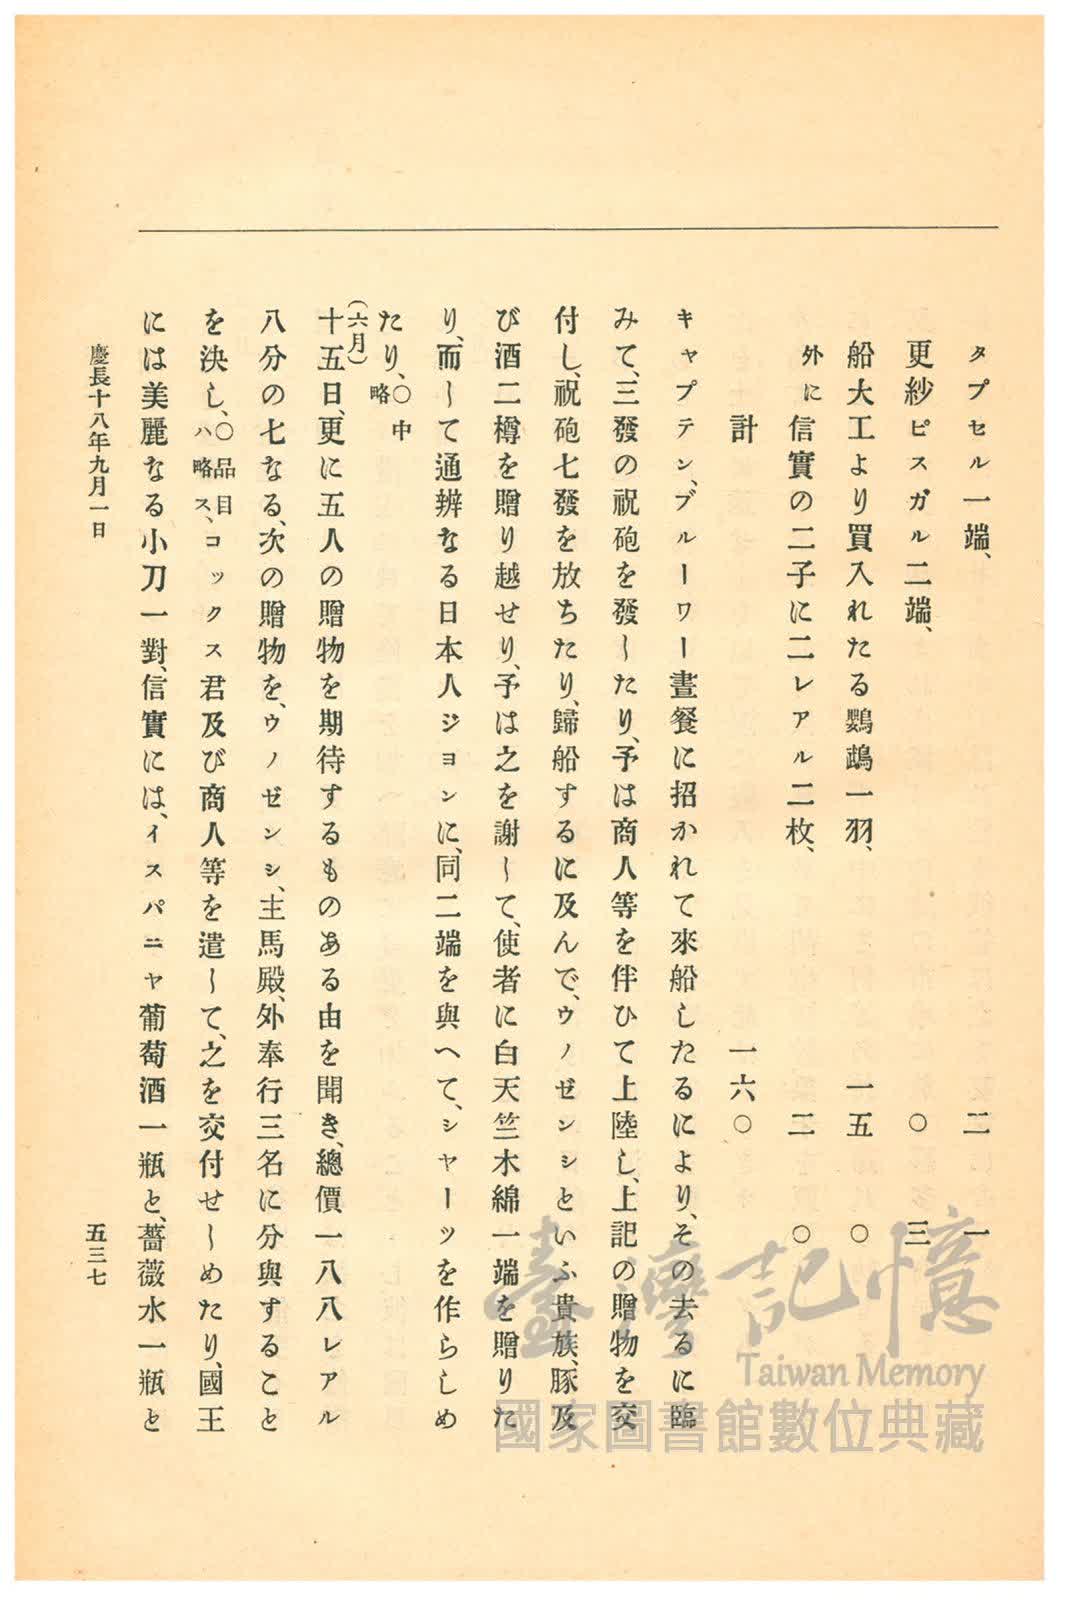 タプセル一端、　二一
更紗ピスガル二端、　〇三
船大工より買入れたる鸚鵡一羽、　一五〇
外に信實の二子に二レアル二枚、　二〇
計　一六〇
キャプテン、ブルーワー晝餐に招かれて來船したるにより、その去るに臨
みて、三發の祝砲を發したり、予は商人等を伴ひて上陸し、上記の贈物を交
付し、祝砲七發を放ちたり、歸船するに及んで、ウノゼンシといふ貴族、豚及
び酒二樽を贈り越せり、予は之を謝して、使者に白天竺木綿一端を贈りた
り、而して通辨なる日本人ジョンに、同二端を與へて、シャーツを作らしめ
たり、〇中略
(六月)
十五日、更に五人の贈物を期待するものある由を聞き、總價一八八レアル
八分の七なる、次の贈物を、ウノゼンシ、主馬殿、外奉行三名に分與すること
を決し、〇品目ハ略ス、コックス君及び商人等を遣して、之を交付せしめたり、國王
には美麗なる小刀一對、信實には、イスパニヤ葡萄酒一瓶と、薔薇水一瓶と
慶長十八年九月一日
五三七
臺灣記憶
Taiwan Memory
國家圖書館數位典藏